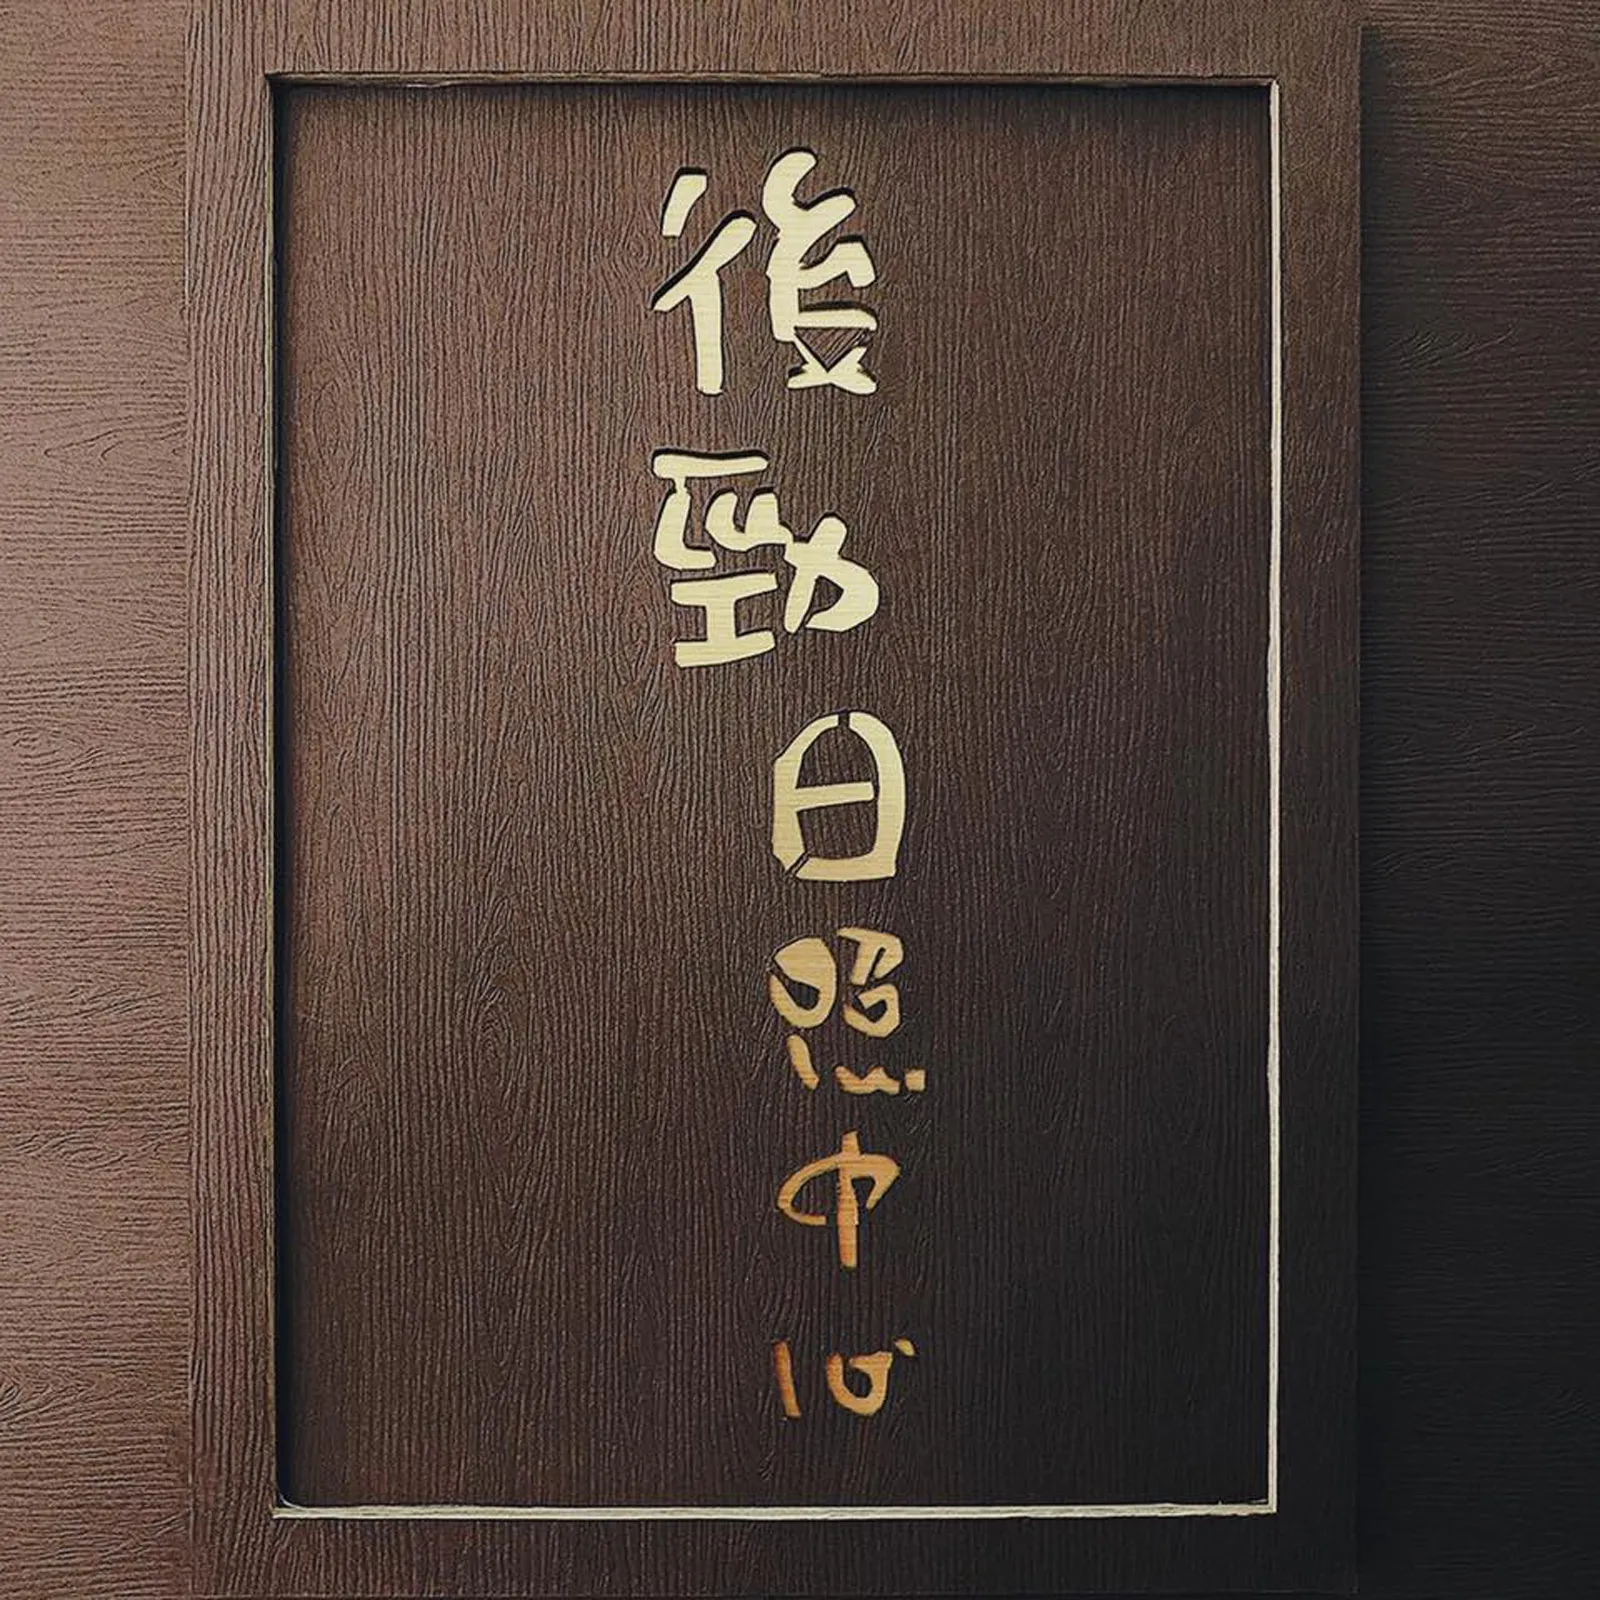 後勁日照中心